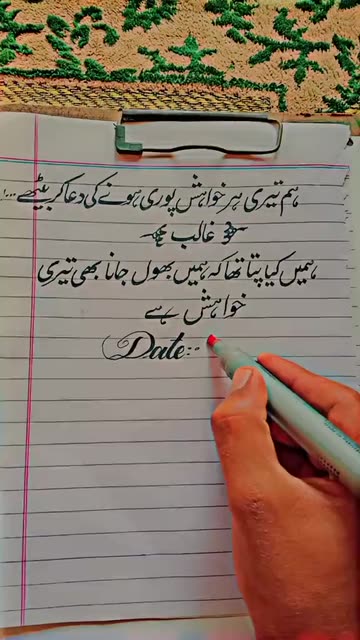 ہم تیری ہر خواہش پوری ہونے کی دعا کر بیٹھے...!
غالب
ہمیں کیا پتا تھا کہ ہمیں بھول جانا بھی تیری
خواہش ہے
Date:-